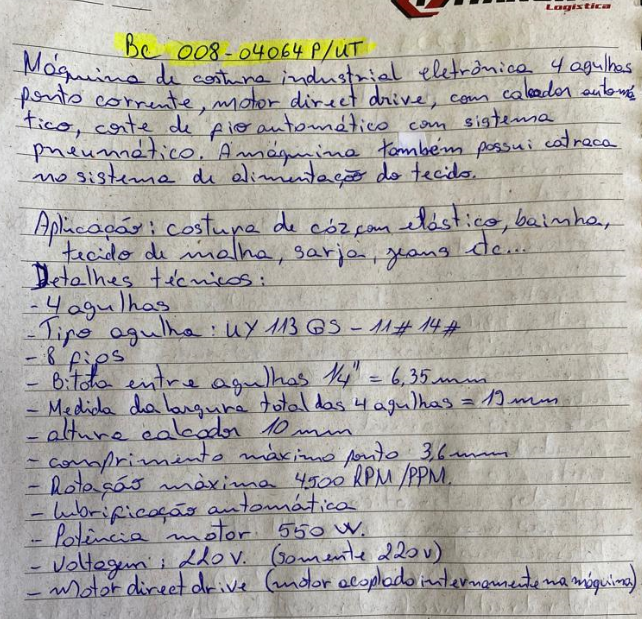 Logística
BC 008-04064P/UT
Máquina de costura industrial eletrônica 4 agulhas
ponto corrente, motor direct drive, com calcador automá
tico, corte de fio automático com sistema
pneumático. A máquina também possui catraca
no sistema de alimentação do tecido.
Aplicação: costura de cóz com elástico, bainha,
tecido de malha, sarja, jeans etc...
Detalhes técnicos:
- 4 agulhas
- Tipo agulha: UY 113 GS - 11# 14#
- 8 fios
- Bitola entre agulhas 1/4" = 6,35mm
- Medida da largura total das 4 agulhas = 19mm
- altura calcador 10mm
- comprimento máximo ponto 3,6mm
- Rotação máxima 4500 RPM/PPM.
- lubrificação automática
- Potência motor: 550 W.
- Voltagem: 220V. (somente 220v)
- Motor direct drive (motor acoplado internamente na máquina)